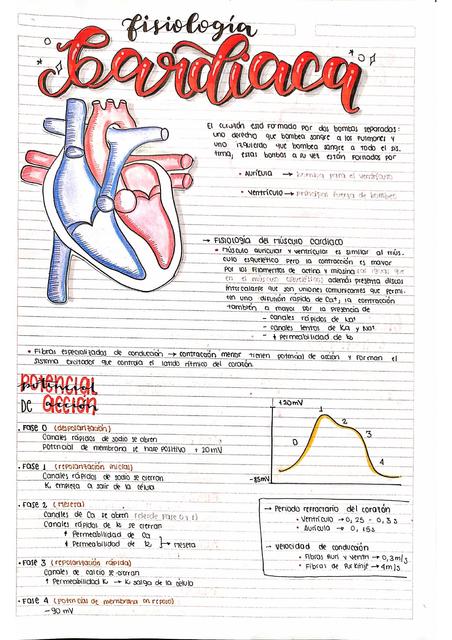 fisiología
Cardiaca
El corazón está formado por dos bombas separadas:
uno derecho que bombea sangre a los pulmones y
uno izquierdo que bombea sangre a todo el sis.
tema, estas bombas a su vez están formados por
• Aurícula → bomba para el ventrículo
• Ventrículo → principal fuerza de bombeo
→ Fisiología del músculo cardiaco
• músculo auricular y ventricular es similar al mús.
culo esquelético pero la contracción es mayor
por los filamentos de actina y miosina (los igual que
en el músculo esquelético) además presenta discos
intercalares que son uniones comunicantes que permi.
ten una difusión rápida de Ca+, la contracción
también a mayor por la presencia de
- canales rápidos de Na+
- canales lentos de Ca y Na+
- ↓ Permeabilidad de K
• Fibras especializadas de conducción → contracción menor tienen potencial de acción y forman el
sistema excitador que controla el latido rítmico del corazón.
potencial
DE acción
• Fase 0 (despolarización)
Canales rápidos de sodio se abren
Potencial de membrana se hace positivo + 20mV
• Fase 1 (repolarización inicial)
Canales rápidos de sodio se cierran
K+ empieza a salir de la célula
• Fase 2 (meseta)
Canales de Ca se abren (desde Fase 0 y 1)
Canales rápidos de K se cierran
↑ Permeabilidad de Ca
↓ Permeabilidad de K → meseta
• Fase 3 (repolarización rápida)
Canales de calcio se cierran
↑ Permeabilidad K → K salga de la célula
• Fase 4 (potencial de membrana en reposo)
-90 mV
+20mV
0
1
2
3
4
-85mV
→ Periodo refractario del corazón
• Ventrículo → 0,25 - 0,3 s
• Aurícula → 0,15s
→ Velocidad de conducción
• Fibras Auri y Ventri → 0,3m/s
• Fibras de Purkinje → 4m/s